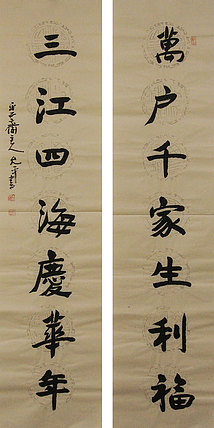 萬户千家生利福
三江四海慶華年